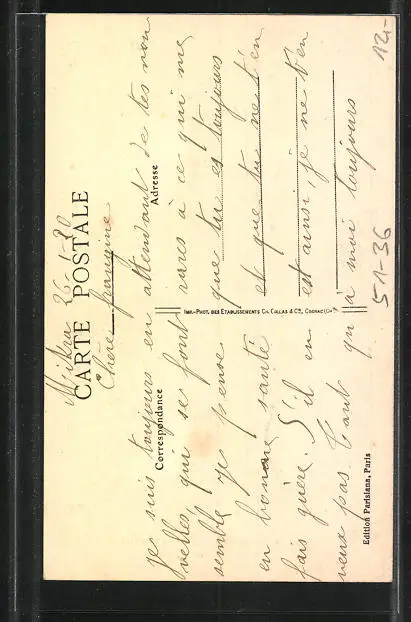 26-1-20
CARTE POSTALE
Chère frangine
Correspondance
Adresse
je suis toujours en attendant de tes nou
velles, qui se font rares à ce qui me
semble je pense que tu es toujours
en bonne santé et que tu ne t'en
fais guère. S'il en est ainsi, je ne t'en
veux pas. Tant qu'à moi toujours
IMP.-PHOT. DES ETABLISSEMENTS CH. COLLAS & Cie, COGNAC
Edition Parisiana, Paris
51-36
12,-